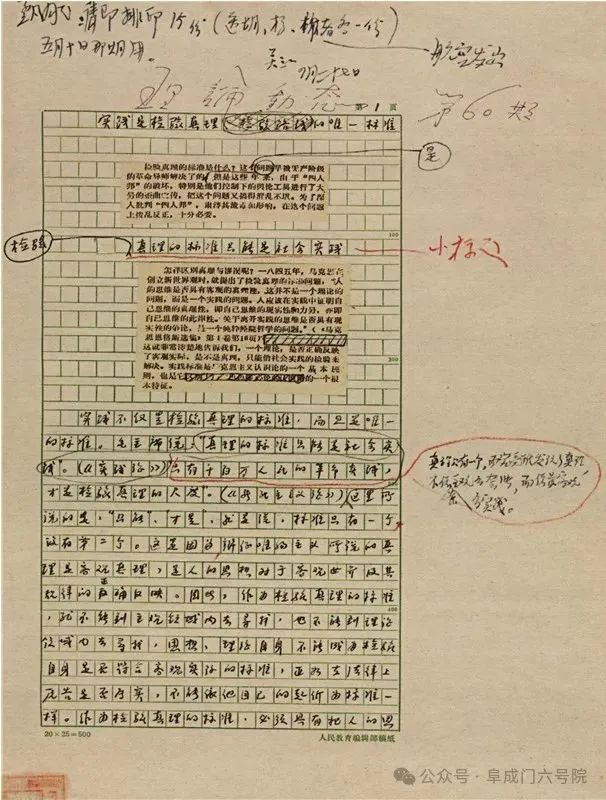 请即排印15份（送胡、杨、
各一份）
五月十日那期用。
航空发出
理论动态
第1页
第60期
实践是检验真理、检验路线的唯一标准
是
检验真理的标准是什么？这个问题早被无产阶级
的革命导师解决了的。但是这些年来，由于“四人
邦”的破坏，特别是他们控制下的舆论工具进行了大
量的歪曲宣传，把这个问题又搞得混乱不堪。为了深
入批判“四人邦”，肃清其流毒和影响，在这个问题
上拨乱反正，十分必要。
100
检验
真理的标准只能是社会实践
小标题
怎样区别真理与谬误呢？一八四五年，马克思在
创立新世界观时，就提出了检验真理的标准问题：“人
的思维是否具有客观的真理性，这并不是一个理论的
问题，而是一个实践的问题。人应该在实践中证明自
己思维的真理性，即自己思维的现实性和力量，亦即
自己思维的此岸性。关于离开实践的思维是否具有现
实性的争论，是一个纯粹经院哲学的问题。”（《马克
思恩格斯选集》第1卷第16页）
这就非常清楚地告诉我们，一个理论，是否正确反映
了客观实际，是不是真理，只能借社会实践的检验来
解决。实践标准是马克思主义认识论的一个基本原
则，也是它
的一个根
本特征。
200
实践不仅是检验真理的标准，而且是唯一
的标准。毛主席说：“真理的标准只能是社会实
践”。（《实践论》）“只有千百万人民的革命实践，
才是检验真理的尺度。”（《新民主主义论》）这里所
说的是，“只能”、“才是”，就是说，标准只有一个，
没有第二个。这是因为辩证唯物主义所说的真
理是客观真理，是人的思想对于客观世界及其
规律的正确反映。因此，作为检验真理的标准，
400
就不能到主观领域内去寻找，也不能到理论
领域内去寻找，思想、理论自身不能成为检验
自身是否符合客观实际的标准，正如在法律上
原告是否属实，不能依他自己的起诉为标准一
样。作为检验真理的标准，必须具有把人的思
真理只有一个，而究竟谁发现了真理，
不依靠主观的夸张，而依靠客观
的实践。
20×25=500
人民教育编辑部稿纸
公众号 · 阜成门六号院